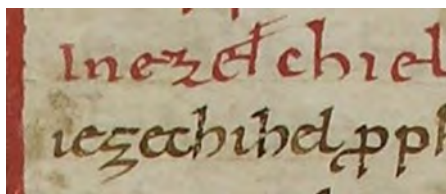 Inezet chiel
iezechihel ꝓph